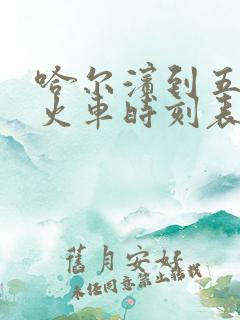 哈尔滨到五
火车时刻表
舊月安好
未经同意禁止转载